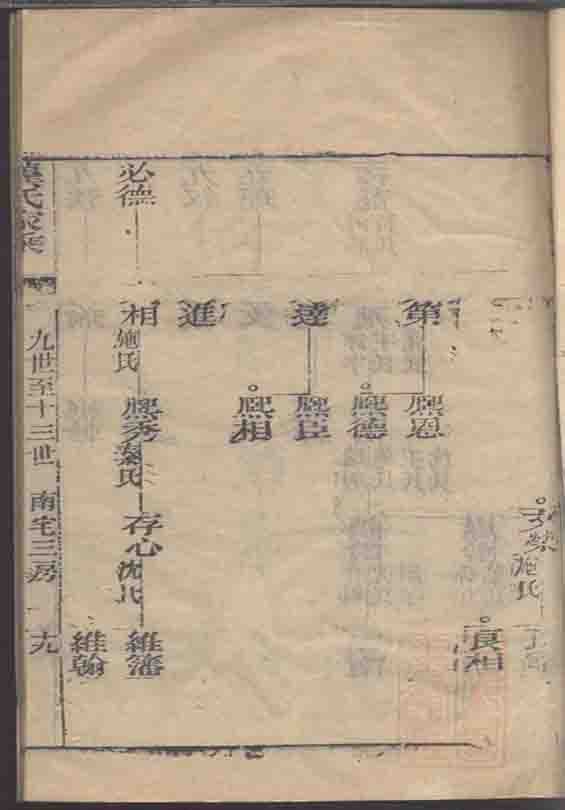 施氏
良相
第
熙恩
熙德
達
熙臣
熙相
進
必德
相 施氏
熙秀 秦氏
存心 沈氏
維藩
維翰
氏家乘
九世至十三世 南宅三房
十九